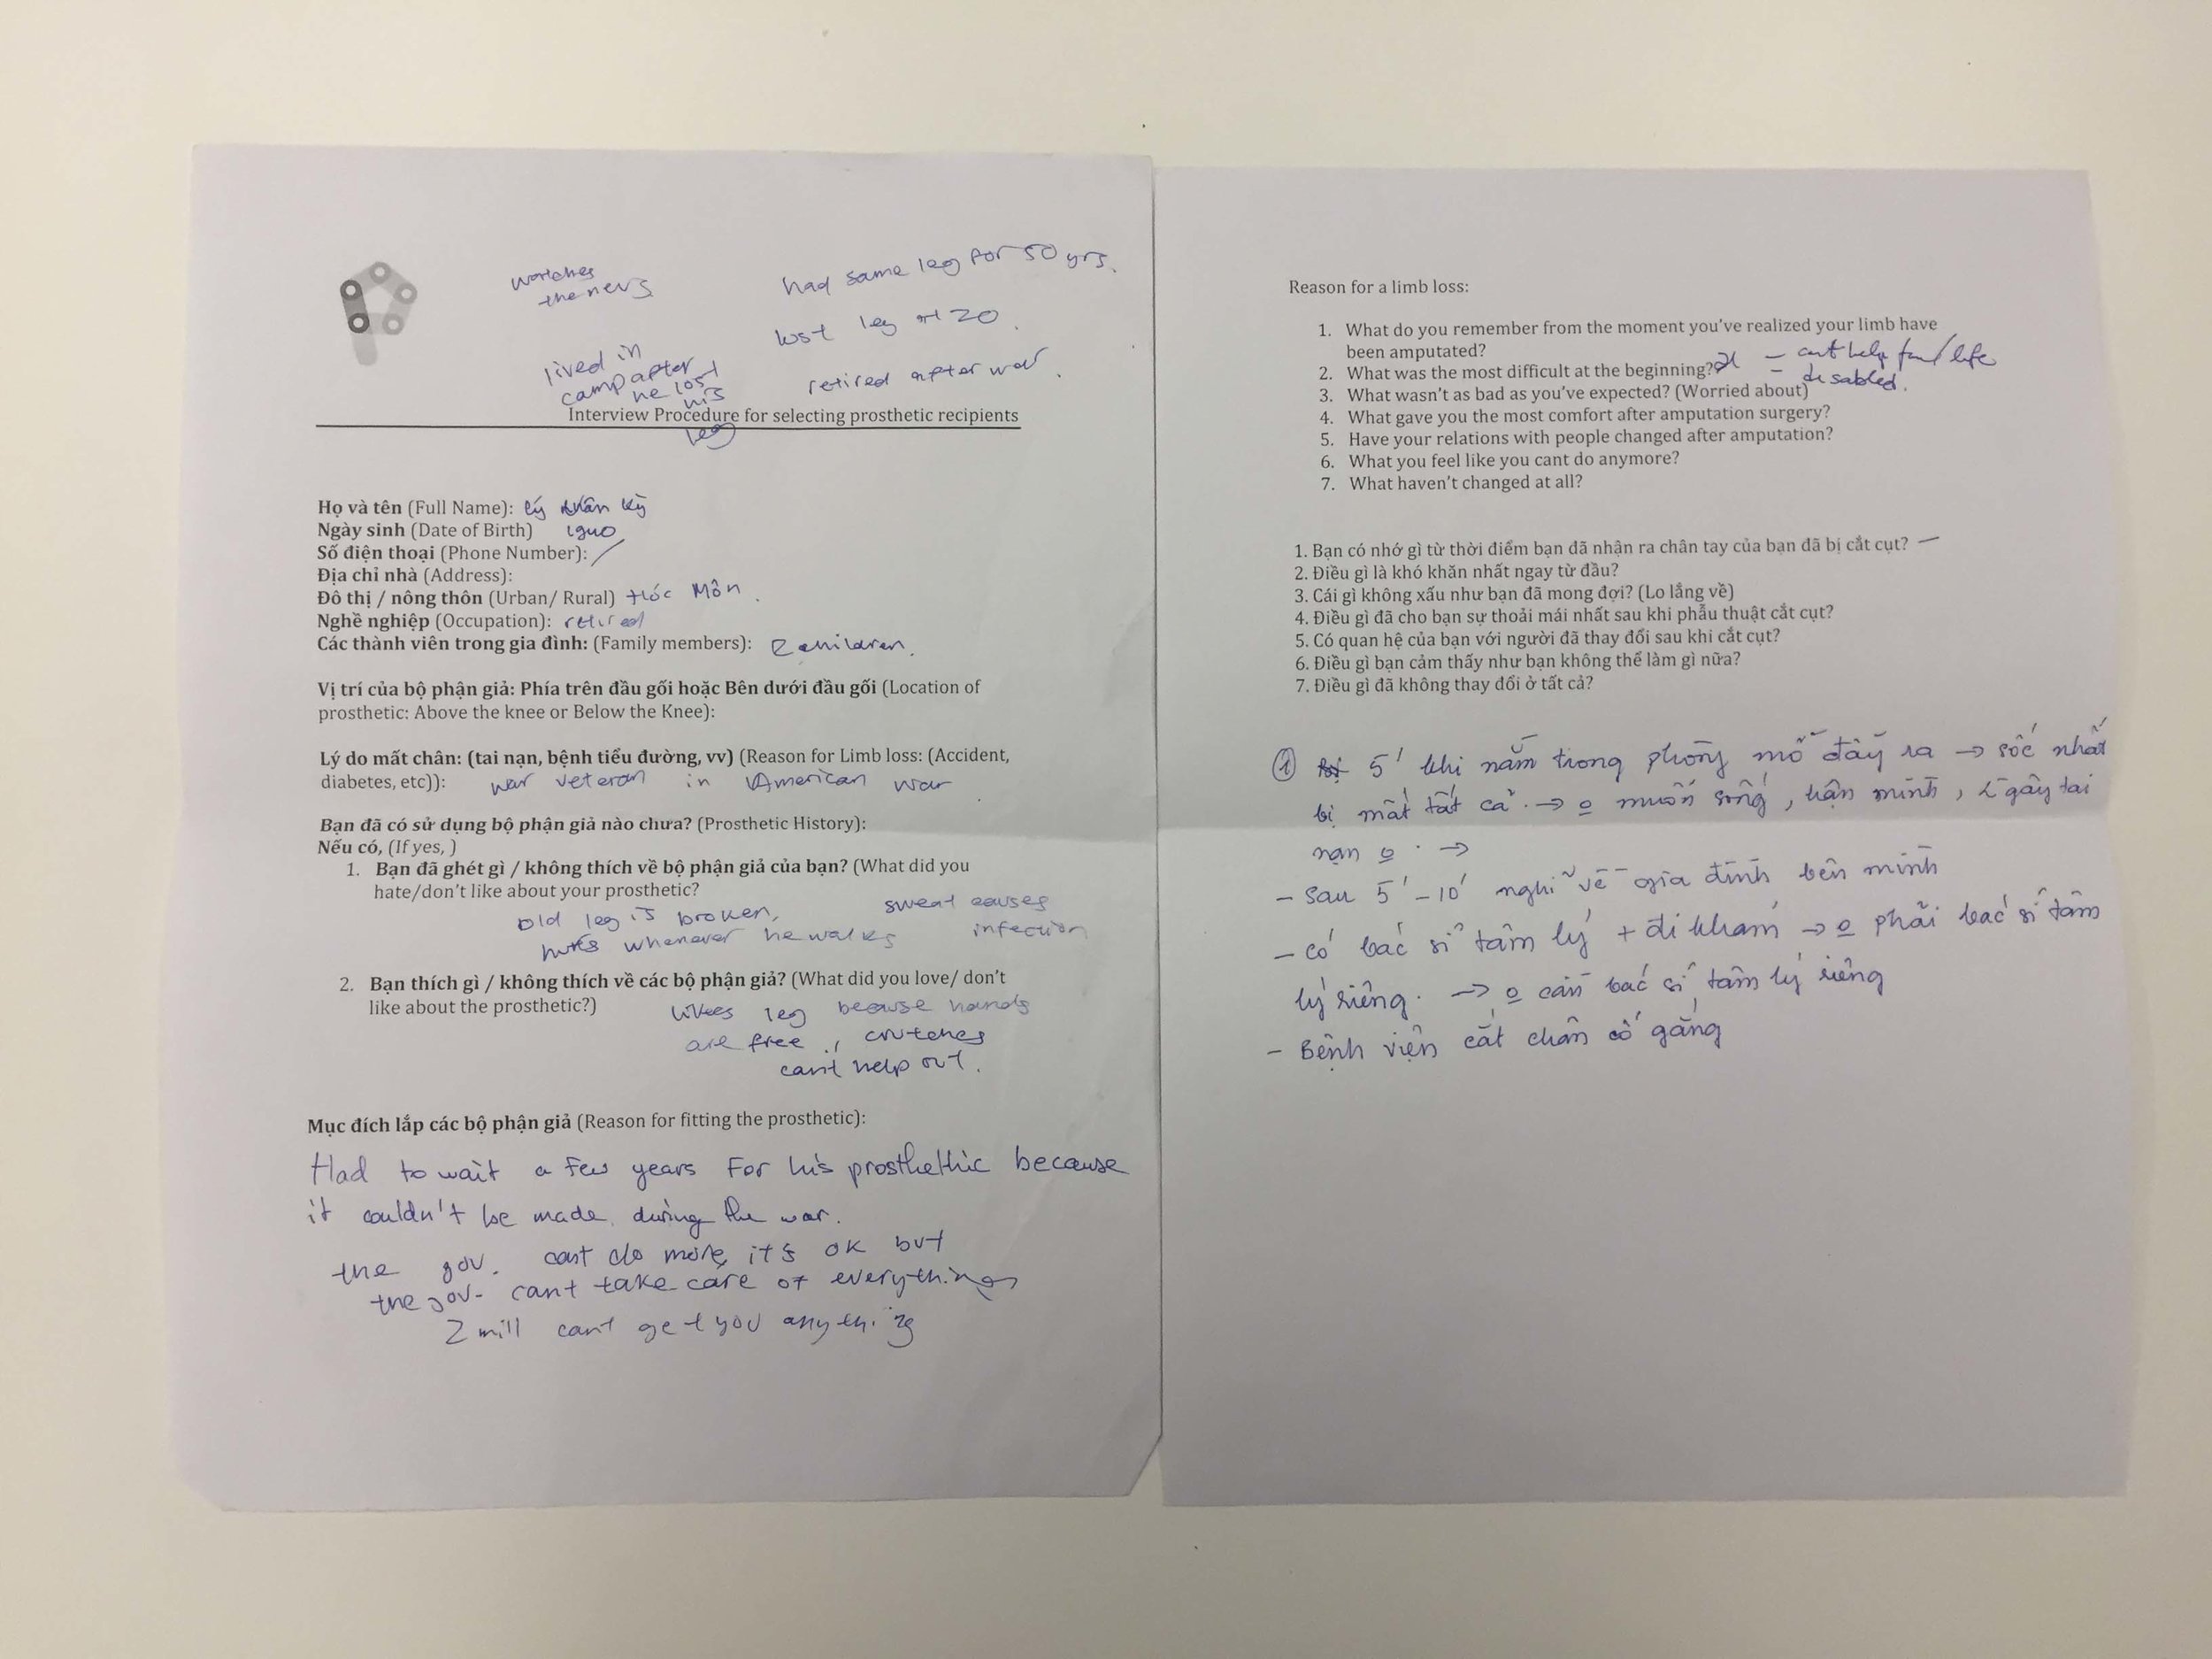 watches
the news
had same leg for 50 yrs.
lost leg at 20.
lived in
camp after
he lost
his
leg
retired after war.
Interview Procedure for selecting prosthetic recipients
Họ và tên (Full Name): Lý Kỳ
Ngày sinh (Date of Birth) 1940
Số điện thoại (Phone Number): /
Địa chỉ nhà (Address):
Đô thị / nông thôn (Urban/ Rural) Hóc Môn.
Nghề nghiệp (Occupation): retired
Các thành viên trong gia đình: (Family members): 2 children.
Vị trí của bộ phận giả: Phía trên đầu gối hoặc Bên dưới đầu gối (Location of
prosthetic: Above the knee or Below the Knee):
Lý do mất chân: (tai nạn, bệnh tiểu đường, vv) (Reason for Limb loss: (Accident,
diabetes, etc)): war veteran in American war
Bạn đã có sử dụng bộ phận giả nào chưa? (Prosthetic History):
Nếu có, (If yes, )
1. Bạn đã ghét gì / không thích về bộ phận giả của bạn? (What did you
hate/don't like about your prosthetic?
old leg is broken,
hurts whenever he walks
sweat causes
infection
2. Bạn thích gì / không thích về các bộ phận giả? (What did you love/ don't
like about the prosthetic?)
likes leg because hands
are free, crutches
can't help out.
Mục đích lắp các bộ phận giả (Reason for fitting the prosthetic):
Had to wait a few years for his prosthethic because
it couldn't be made during the war.
the gov. cant do more, it's ok but
the gov. can't take care of everything
2 mill cant get you anything
Reason for a limb loss:
1. What do you remember from the moment you've realized your limb have
been amputated?
2. What was the most difficult at the beginning? – can't help / life
– disabled.
3. What wasn't as bad as you've expected? (Worried about)
4. What gave you the most comfort after amputation surgery?
5. Have your relations with people changed after amputation?
6. What you feel like you cant do anymore?
7. What haven't changed at all?
1. Bạn có nhớ gì từ thời điểm bạn đã nhận ra chân tay của bạn đã bị cắt cụt? –
2. Điều gì là khó khăn nhất ngay từ đầu?
3. Cái gì không xấu như bạn đã mong đợi? (Lo lắng về)
4. Điều gì đã cho bạn sự thoải mái nhất sau khi phẫu thuật cắt cụt?
5. Có quan hệ của bạn với người đã thay đổi sau khi cắt cụt?
6. Điều gì bạn cảm thấy như bạn không thể làm gì nữa?
7. Điều gì đã không thay đổi ở tất cả?
① 5' khi nằm trong phòng mổ đẩy ra → sốc nhất
bị mất tất cả. → o muốn sống, hận mình, gây tai
nạn o. →
– Sau 5' – 10' nghĩ về gia đình bên mình
– có bác sĩ tâm lý + đi khám → o phải bác sĩ tâm
lý riêng. → o cần bác sĩ tâm lý riêng
– Bệnh viện cắt chân cố gắng